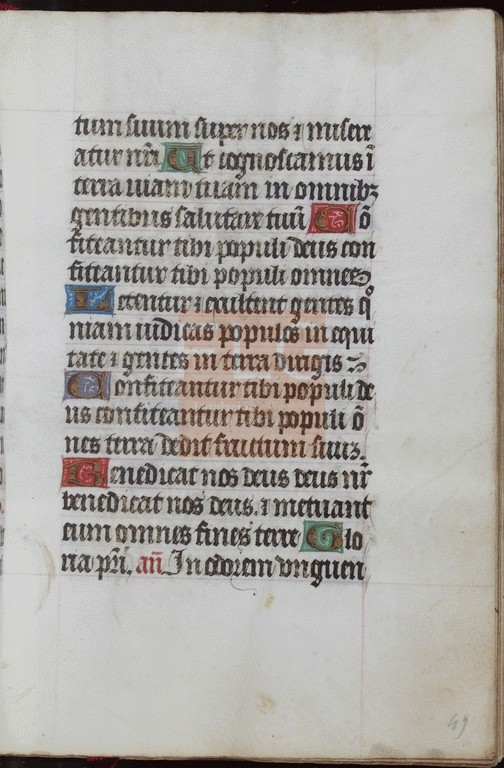 tum suum super nos ⁊ misere
atur nr̄i Ut cognoscamus ī
terra viam tuam in omnibꝫ
gentibus salutare tuū Cō
fiteantur tibi populi deus con
fiteantur tibi populi omnes
Letentur ⁊ exultent gentes qͦ
niam iudicas populos in equi
tate ⁊ gentes in terra dirigis
Confiteantur tibi populi de
us confiteantur tibi populi ō
nes terra dedit fructum suūꝫ.
Benedicat nos deus deus nr̄
benedicat nos deus. ⁊ metuant
eum omnes fines terre Glo
ria pr̄i. an̄ In odorem vnguen
49